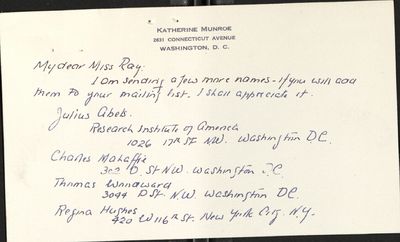 KATHERINE MUNROE
2631 CONNECTICUT AVENUE
WASHINGTON, D. C.
My dear Miss Ray.
I am sending a few more names - if you will add
them to your mailing list. I shall appreciate it.
Julius Abels.
Research Institute of America
1026 17th St NW. Washington D.C.
Charles Mahaffie
St N.W. Washington D.C.
Thomas Woodward
D St. N.W. Washington D.C.
Regina Hughes
420 W 116th St. New York City. N.Y.